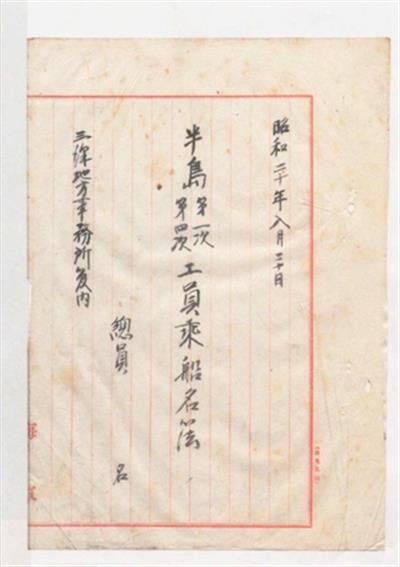 昭和二十年八月三十日
半島 第一次
第四次 工員乘船名簿
總員 名
地方事務所